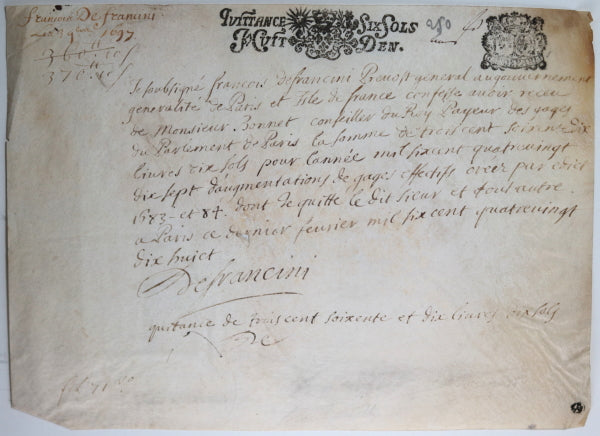 françois De francini
1697
360.10 s
370.10 s
QUITTANCE SIX SOLS
HUIT DEN.
250
Je soubsigné françois Defrancini Prevost general au gouvernement
generalité de Paris et Isle de france confesse avoir receu
de Monsieur Bonnet conseiller du Roy Payeur des gages
du Parlement de Paris la somme de trois cent soixente dix
livres dix sols pour l'année mil sixcent quatrevingt
dix sept d'augmentations de gages effectifs creéz par edict
1683 et 84. dont Je quitte le dit sieur et tous autre
a Paris ce dernier fevrier mil six cent quatrevingt
dix huict
Defrancini
quitance de trois cent soixente et dix livres dix sols
De